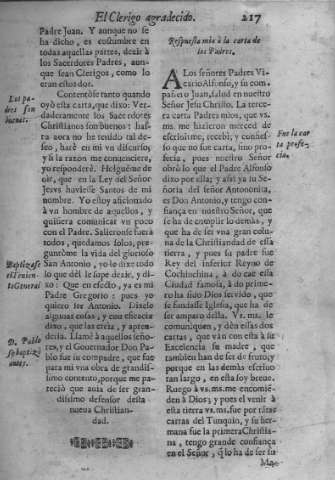 El Clerigo agradecido. 217
Padre Juan. Y aunque no se
ha dicho, es costumbre en
todas aquellas partes, dezir à
los Sacerdotes Padres, aun-
que sean Clerigos, como lo
eran estos dos.
Contentòse tanto quando
oyò esta carta, que dixo: Ver-
daderamente los Sacerdotes
Christianos son buenos: has-
ta aora no he tenido tal de-
seo, harè en mi vn discurso,
y si la razon me convenciere,
yo responderè. Helgueme de
oir, que en la Ley del Señor
Jesvs huviesse Santos de mi
nombre. Yo estoy aficionado
à vn hombre de aquellos, y
quisiera comunicar vn poco
con el Padre. Salieronse fuera
todos, quedamos solos, pre-
guntòme la vida del glorioso
San Antonio, yo le dixe todo
lo que dèl se supe dezir, y di-
xo: Que en efecto, ya es mi
Padre Gregorio: pues yo
quiero ser Antonio. Dixele
algunas cosas, y con eficacia
dixo, que las creìa, y apren-
deria. Llamè à aquellos seño-
res, y el Governador Don Pa-
blo fue su compadre, que fue
para mi vna obra de grandis-
simo contento, porque me pa-
reciò que avia de ser gran-
dissimo defensor desta
nueva Christian-
dad.
Los pa-
dres son
buenos.
Baptizase
el Tenien-
te General
D. Pablo
se baptizò
antes.
Respuesta mia à la carta de
los Padres.
A Los señores Padres Vi-
cario Alfonso, y su com-
pañero Juan, salud en nuestro
Señor Jesu Christo. La terce-
ra carta Padres mios, que vs.
ms. me hizieron merced de
escrivirme, recebi; y confies-
so que no fue carta, sino profe-
cia, pues nuestro Señor
obrò lo que el Padre Alfonso
dixo por ella; y assi ya su Se-
ñoria del señor Antononitta,
es Don Antonio, y tengo con-
fiança en nuestro Señor, que
se ha de cumplir lo demàs, y
que ha de ser vna gran colum-
na de la Christiandad de esta
tierra, y pues la padre fue
Rey del inferior Reyno de
Cochinchina, à do cae esta
Ciudad famosa, à do prime-
ro ha sido Dios servido, que
se fundasse Iglesia, que ha de
ser amparo della. Vs. ms. le
comuniquen, y dèn essas dos
cartas, que vàn con esta à su
Excelencia su madre, que
tambien han de ser de fruto, y
porque en las demàs escrivo
tan largo, en esta soy breve.
Ruego à vs. ms. me encomien-
den à Dios; y pues el venir à
esta tierra vs. ms. fue por otras
cartas del Tunquin, y su her-
mana fue la primera Christia-
na, tengo grande confiança
en el Señor, q̃ lo ha de ser su
Ma-
Fue la car-
ta profe-
cia.